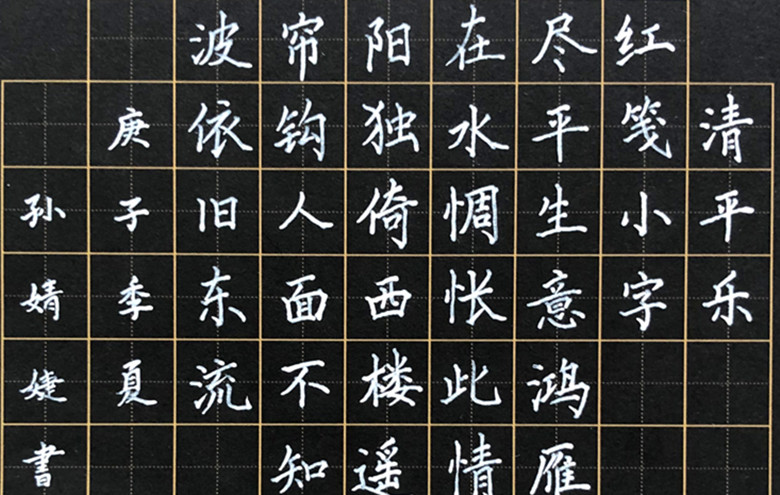 清平乐
红笺小字
尽平生意鸿雁
在水惆怅此情
阳独倚西楼遥
帘钩人面不知
波依旧东流
庚子季夏
孙婧婕書